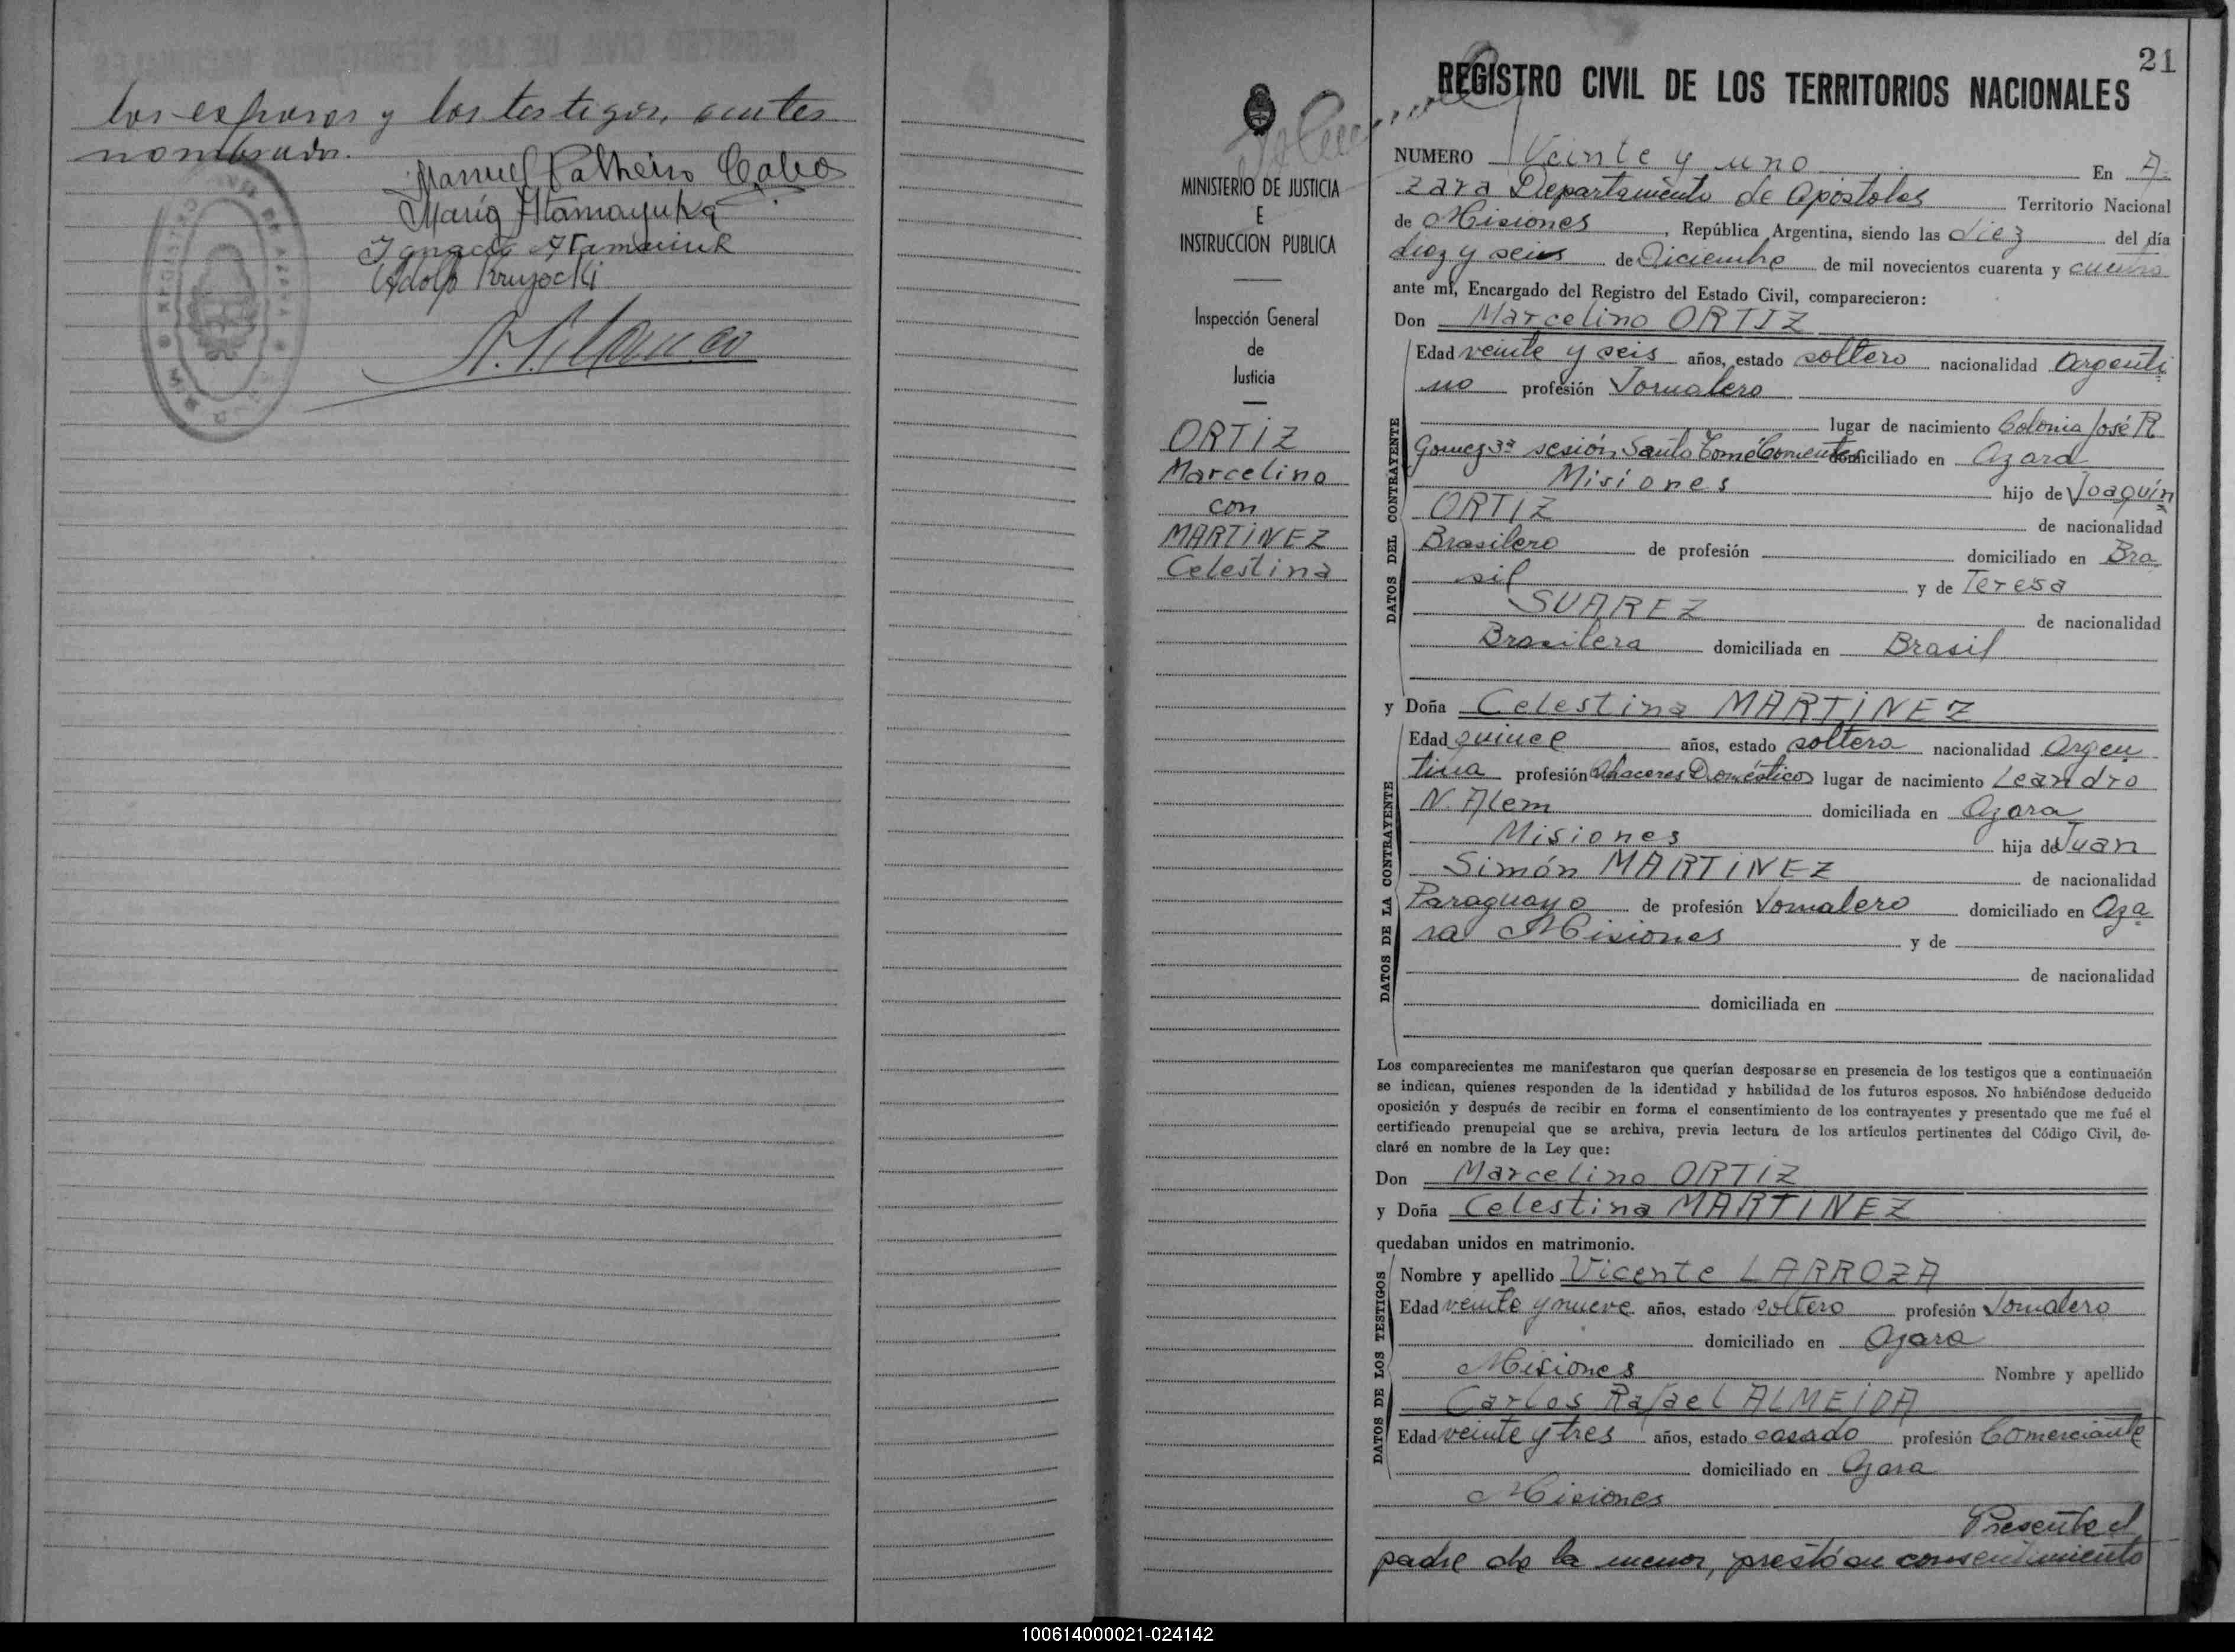 los esposos y los testigos, antes
nombrados.
Manuel Palheiro Calvo
María Atamañuk
Ignacio Atamaniuk
Adolfo Kruyocki
21
REGISTRO CIVIL DE LOS TERRITORIOS NACIONALES
MINISTERIO DE JUSTICIA
E
INSTRUCCION PUBLICA
Inspección General
de
Justicia
ORTIZ
Marcelino
con
MARTINEZ
Celestina
NUMERO Veinte y uno En A
zara Departamento de Apóstoles Territorio Nacional
de Misiones, República Argentina, siendo las diez del día
diez y seis de Diciembre de mil novecientos cuarenta y cuatro
ante mí, Encargado del Registro del Estado Civil, comparecieron:
Don Marcelino ORTIZ
DATOS DEL CONTRAYENTE
Edad veinte y seis años, estado soltero nacionalidad Argenti
no profesión Jornalero
lugar de nacimiento Colonia José R
Gomez 3ª sesión Santo Tomé Corrientes domiciliado en Azara
Misiones hijo de Joaquín
ORTIZ de nacionalidad
Brasilero de profesión domiciliado en Bra
sil y de Teresa
SUAREZ de nacionalidad
Brasilera domiciliada en Brasil
y Doña Celestina MARTINEZ
DATOS DE LA CONTRAYENTE
Edad quince años, estado soltera nacionalidad Argen
tina profesión Quhaceres Domésticos lugar de nacimiento Leandro
N. Alem domiciliada en Azara
Misiones hija de Juan
Simón MARTINEZ de nacionalidad
Paraguayo de profesión Jornalero domiciliado en Aza
ra Misiones y de
de nacionalidad
domiciliada en
Los comparecientes me manifestaron que querían desposarse en presencia de los testigos que a continuación
se indican, quienes responden de la identidad y habilidad de los futuros esposos. No habiéndose deducido
oposición y después de recibir en forma el consentimiento de los contrayentes y presentado que me fué el
certificado prenupcial que se archiva, previa lectura de los artículos pertinentes del Código Civil, de-
claré en nombre de la Ley que:
Don Marcelino ORTIZ
y Doña Celestina MARTINEZ
quedaban unidos en matrimonio.
DATOS DE LOS TESTIGOS
Nombre y apellido Vicente LARROZA
Edad veinte y nueve años, estado soltero profesión Jornalero
domiciliado en Azara
Misiones Nombre y apellido
Carlos Rafael ALMEIDA
Edad veinte y tres años, estado casado profesión Comerciante
domiciliado en Azara
Misiones
Presente el
padre de la menor, prestó su consentimiento
100614000021-024142